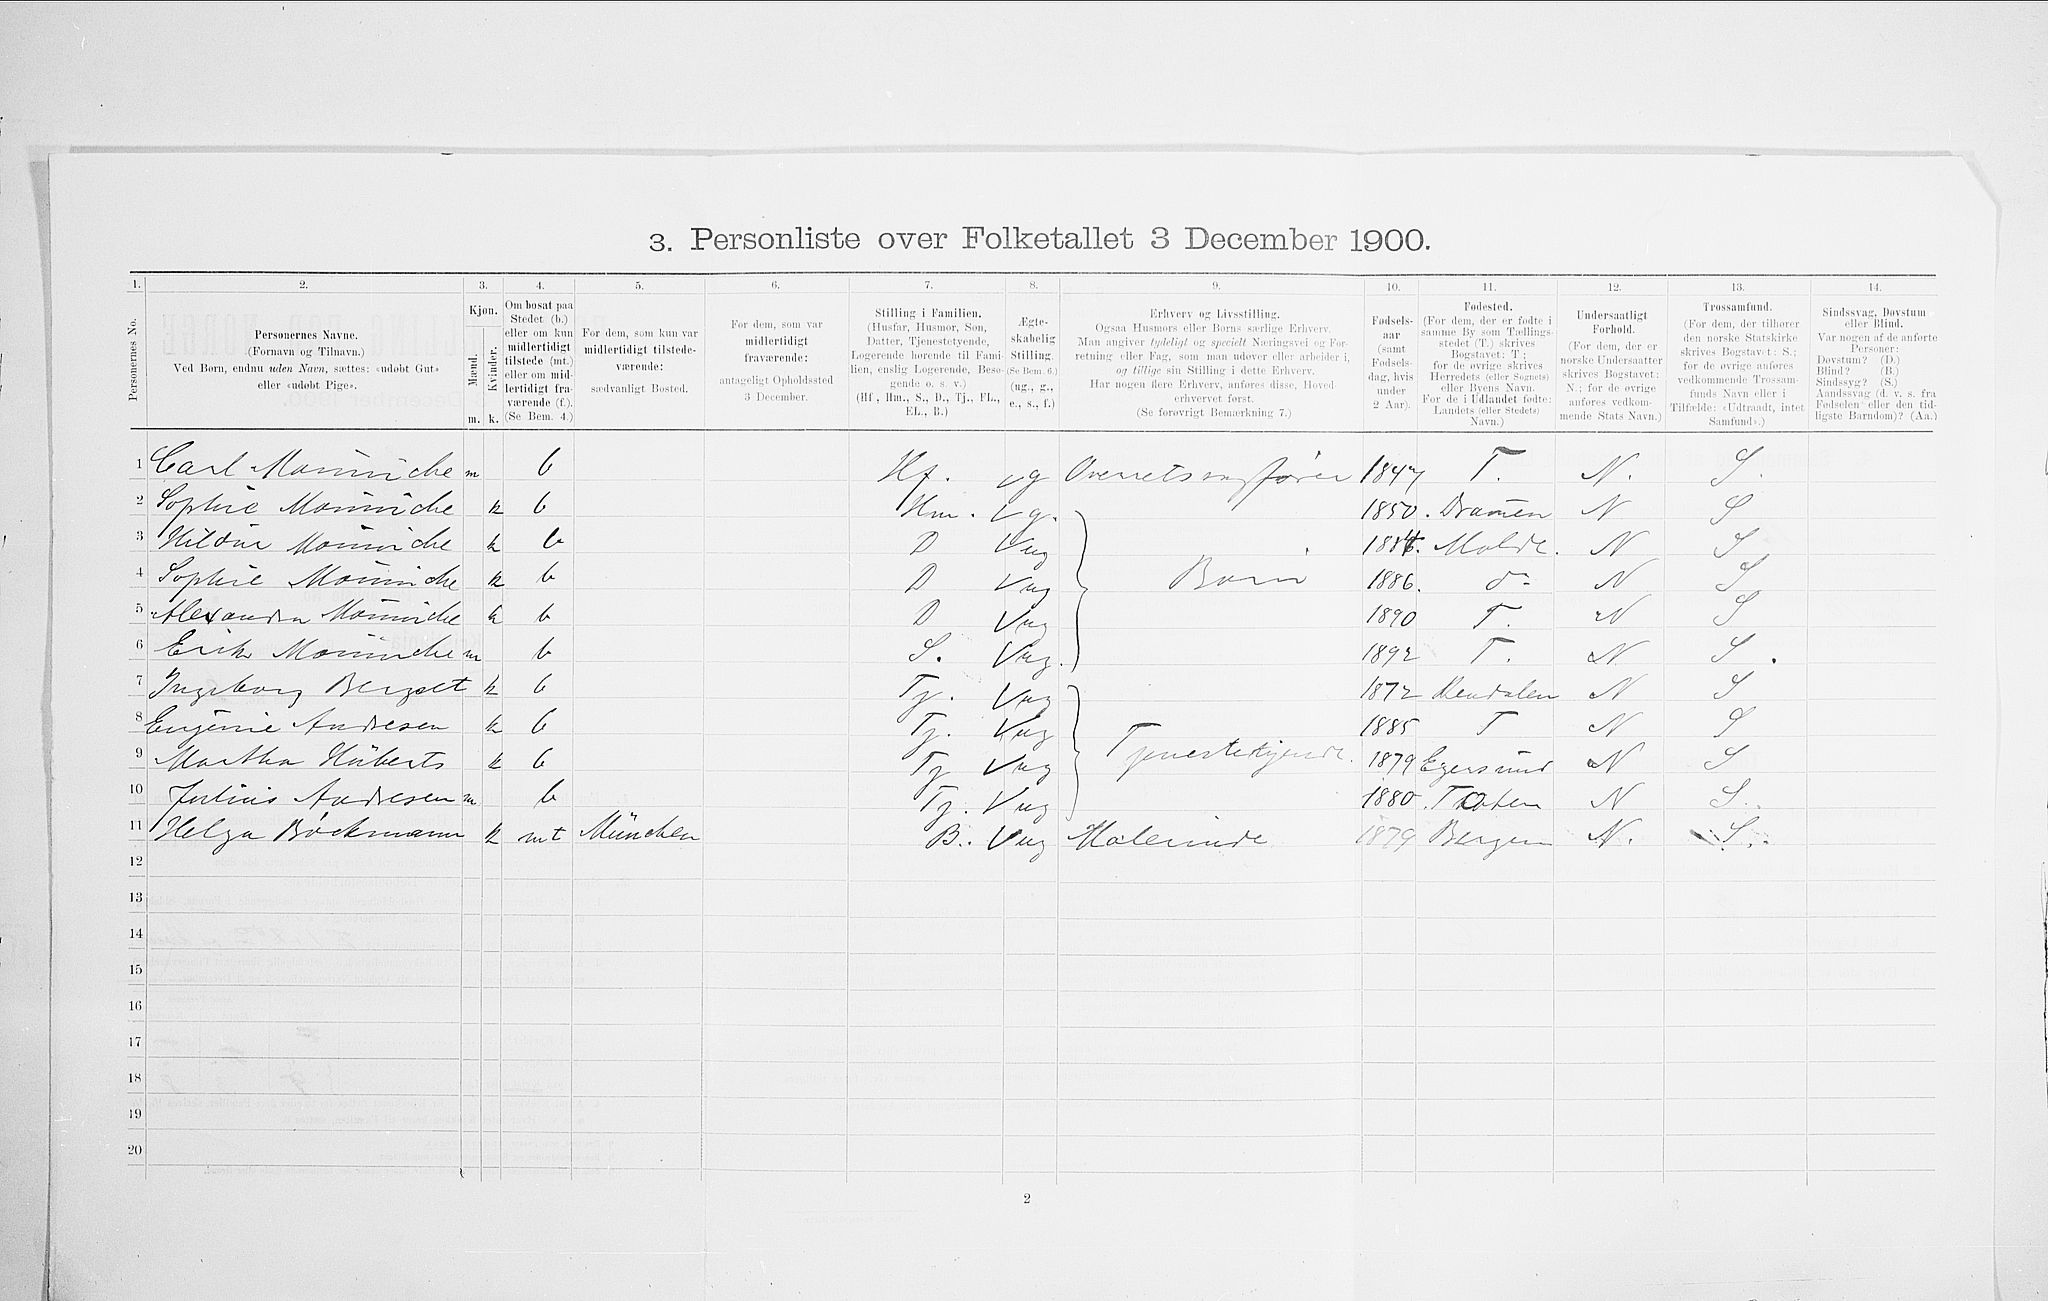 3. Personliste over Folketallet 3 December 1900.
1. 2. 3. 4. 5. 6. 7. 8. 9. 10. 11. 12. 13. 14.
Personernes No.
Personernes Navne.
(Fornavn og Tilnavn.)
Ved Børn, endnu uden Navn, sættes: «udøbt Gut»
eller «udøbt Pige».
Kjøn.
Mænd.
Kvinder.
m. k.
Om bosat paa
Stedet (b.)
eller om kun
midlertidigt
tilstede (mt.)
eller om mid-
lertidigt fra-
værende (f.).
(Se Bem. 4.)
For dem, som kun var
midlertidigt tilstede-
værende:
sædvanligt Bosted.
For dem, som var
midlertidigt
fraværende:
antageligt Opholdssted
3 December.
Stilling i Familien.
(Husfar, Husmor, Søn,
Datter, Tjenestetyende,
Logerende hørende til Fami-
lien, enslig Logerende, Besø-
gende o. s. v.)
(Hf., Hm., S., D., Tj., FL.,
EL., B.)
Ægte-
skabelig
Stilling.
(Se Bem. 6.)
(ug., g.,
e., s., f.)
Erhverv og Livsstilling.
Ogsaa Husmors eller Børns særlige Erhverv.
Man angiver tydeligt og specielt Næringsvei og For-
retning eller Fag, som man udøver eller arbeider i,
og tillige sin Stilling i dette Erhverv.
Har nogen flere Erhverv, anføres disse, Hoved-
erhvervet først.
(Se forøvrigt Bemærkning 7.)
Fødsels-
aar
(samt
Fødsels-
dag, hvis
under
2 Aar).
Fødested.
(For dem, der er fødte i
samme By som Tællings-
stedet (T.) skrives
Bogstavet: T;
for de øvrige skrives
Herredets (eller Sognets)
eller Byens Navn.
For de i Udlandet fødte:
Landets (eller Stedets)
Navn.)
Undersaatligt
Forhold.
(For dem, der er
norske Undersaatter
skrives Bogstavet:
N.; for de øvrige
anføres vedkom-
mende Stats Navn.)
Trossamfund.
(For dem, der tilhører
den norske Statskirke
skrives Bogstavet: S.;
for de øvrige anføres
vedkommende Trossam-
funds Navn eller i
Tilfælde: «Udtraadt, intet
Samfund».)
Sindssvag, Døvstum
eller Blind.
Var nogen af de anførte
Personer:
Døvstum? (D.)
Blind? (B.)
Sindssyg? (S.)
Aandssvag (d. v. s. fra
Fødselen eller den tid-
ligste Barndom)? (Aa.)
1 Carl Mönniche m b Hf. g Overretssagfører 1847 T. N. S.
2 Sophie Mönniche k b Hm. g. 1850. Dramen N S
3 Hildur Mönniche k b D ug Molde. N S
4 Sophie Mönniche k b D ug Børn 1886. do N S
5 Alexandra Mönniche k b D ug 1890 T. N S
6 Erik Mönniche m b S. ug. 1892 T. N S.
7 Ingeborg Bergset k b Tj. ug 1872 Rendalen N S
8 Eugenie Andresen k b Tj. ug 1885 T N S
9 Martha Hüberts k b Tj ug Tjenestetyende. 1879 Egersund N S
10 Julius Andresen m b Tj. ug 1880. Toten N S.
11 Helga Böckmann k mt München B. ug Malerinde 1879 Bergen N. S.
12
13
14
15
16
17
18
19
20
2